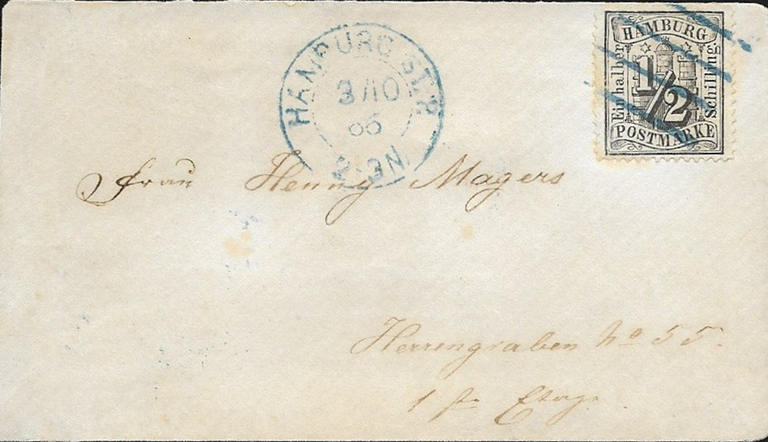 HAMBURG ST.P.
3/10
66
2-3N
HAMBURG
Ein halber
Schilling
1/2
POSTMARKE
Frau Henny Magers
Herrengraben No 55.
1 ste Etage.